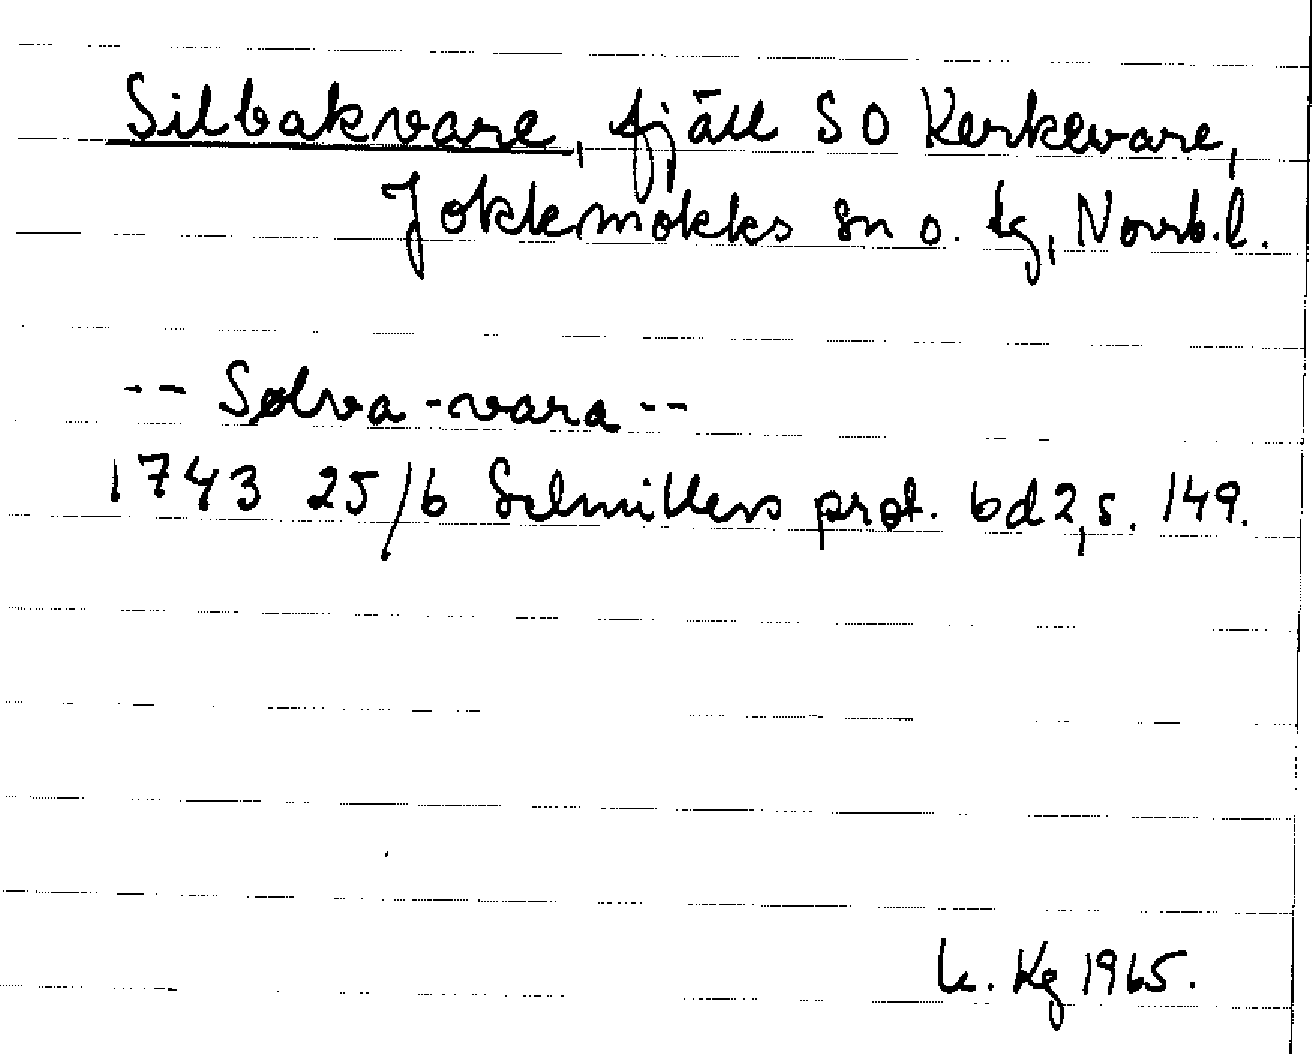 Silbakvare, fjäll SO Kerkevare,
Jokkmokks sn o. tg, Norrb.l.
-- Sølva-vara --
1743 25/6 Schnitlers prot. bd 2, s. 149.
k. Kg 1965.